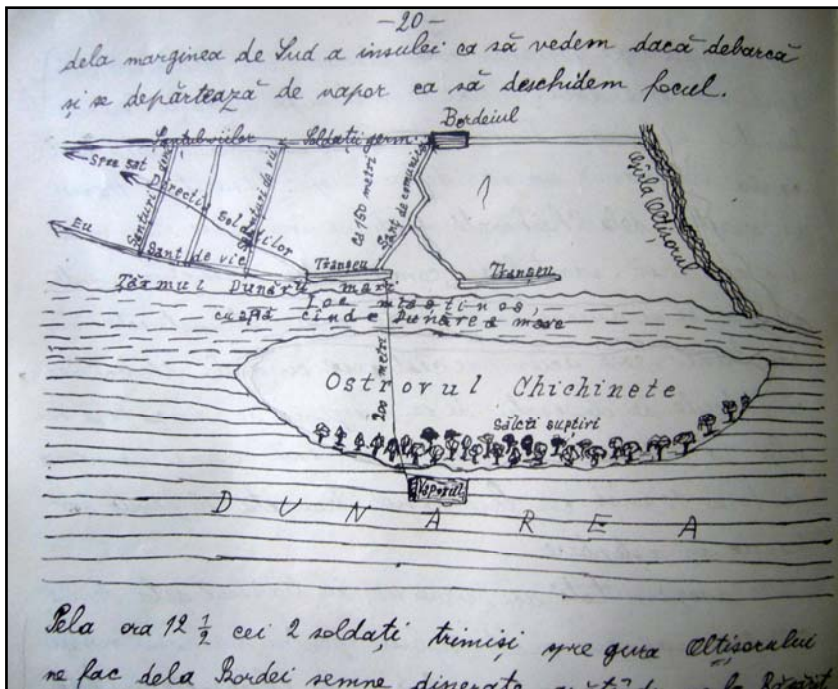 —20—
dela marginea de Sud a insulei ca să vedem dacă debarcă
și se depărtează de vapor ca să deschidem focul.
Bordeiul
Șanțul viilor
Soldații germ.
Spre sat
Direcția soldaților
Șanțuri de vii
Ca 150 metri
Șanț de comunic.
?
Gîrla Oltișorul
Eu
Șanț de vie
Tranșeu
Tranșeu
Țărmul Dunării mari
Loc mlăștinos,
cu apă cînd e Dunărea mare
200 metri
Ostrovul Chichinete
Sălcii supțiri
Vaporul
DUNAREA
Pela ora 12 1/2 cei 2 soldați trimiși spre gura Oltișorului
ne fac dela Bordei semne disperate